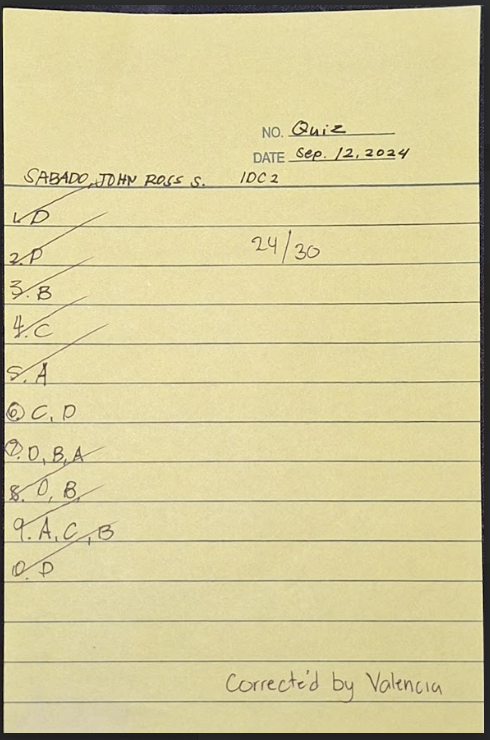 NO. Quiz
DATE Sep. 12, 2024
SABADO, JOHN ROSS S. IDC2
1. D
2. D
24/30
3. B
4. C
5. A
6. C, D
7. D, B, A
8. D, B,
9. A, C, B
10. D
Correcte'd by Valencia